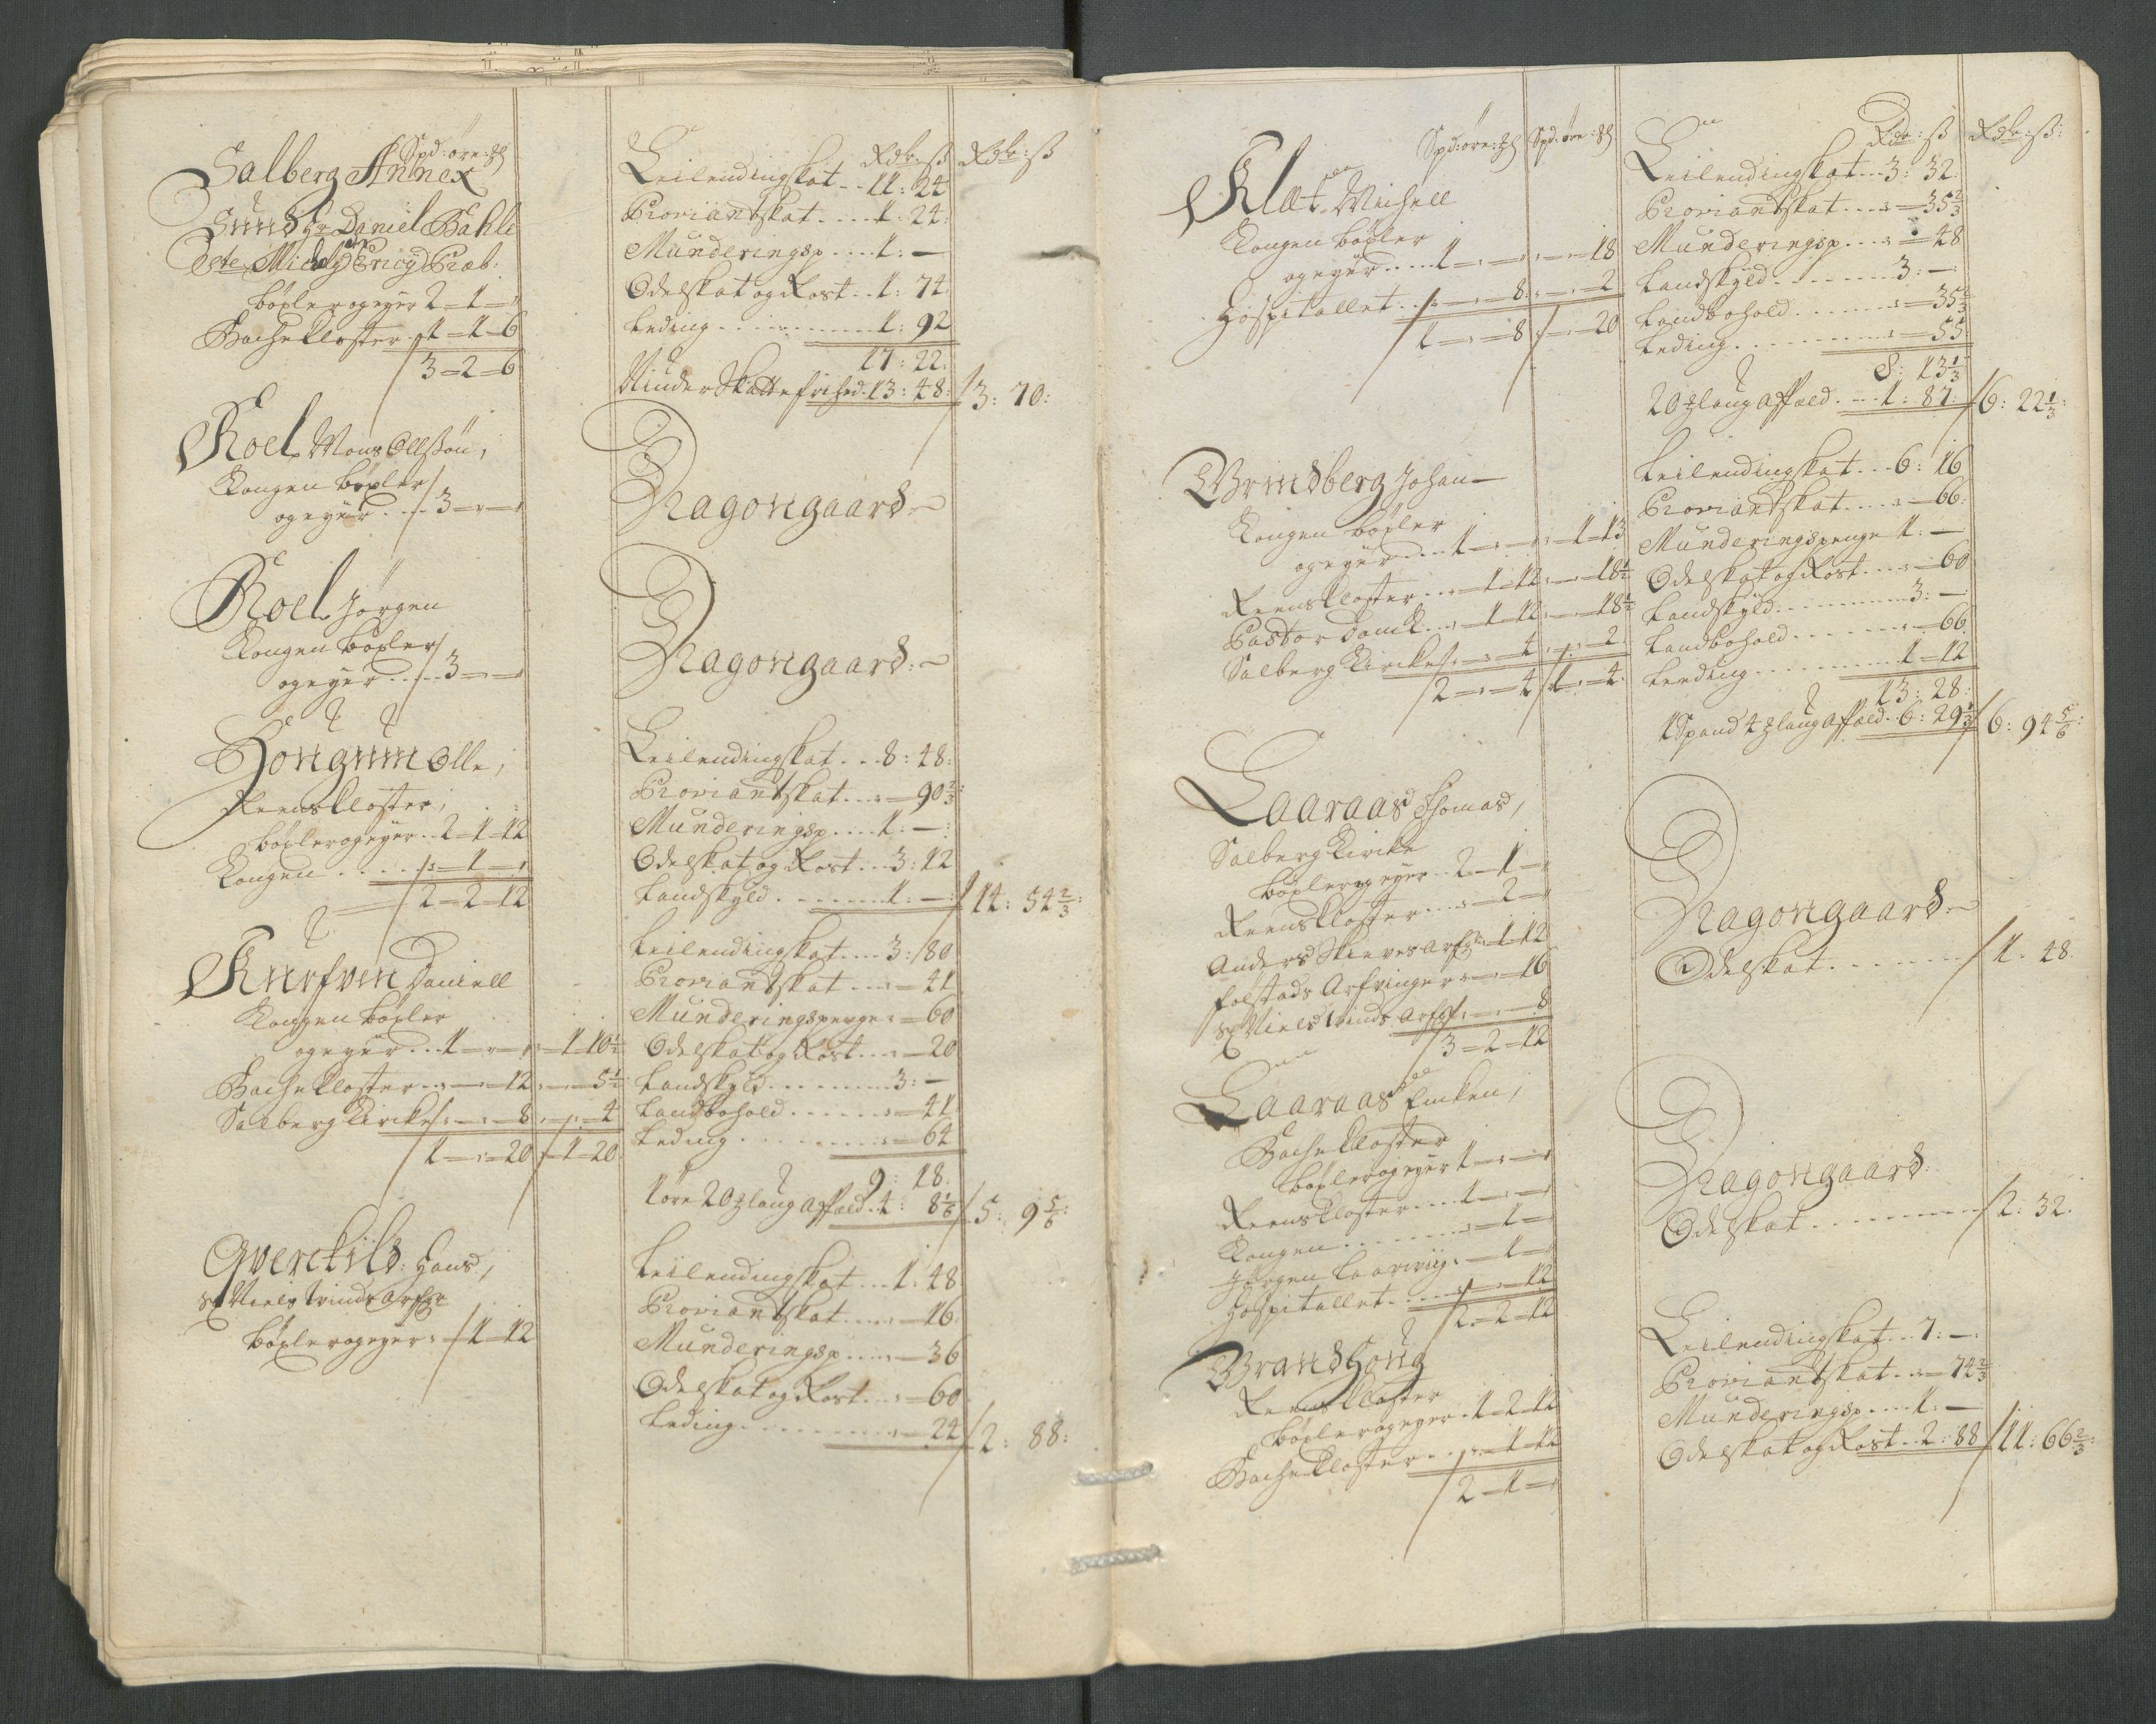 Spd: öre: ℔
Salberg Annex
Sund Hr Daniel Bahle
bøxler og eyer 2 – 1 – "
Bache Closter " 1 – 1 – 6
3 – 2 – 6
Roel Mons Ollssøn,
Kongen bøxler
og eyer .... 3 – " – "
Roel Jørgen
Kongen bøxler
og eyer ..... 3 – " – "
Hongum Olle,
Reens Closter,
bøxler og eyer .. 2 – 1 – 12
Kongen .... " – 1 – "
2 – 2 – 12
Kurfven Daniell
Kongen bøxler
og eyer ... 1 – " – " " – 1 – 10½
Bache Closter ... " – " – 12 " – " – 5½
Salberg Kircke " – " – 8 " – " – 4
1 – " – 20 " – 1 – 20
Qverckild: Hans,
Sl Niels Winds Arfg:
bøxler og eyer: " – 1 – 12
Rdr: ß Rdr: ß
Leilendingskat .. 11: 24
Proviantskat .... 1: 24:
Munderingsp .... 1: —
Odelskat og Rost .. 1: 74:
Leding ............ 1: 92
17: 22:
Minder Skattefrihed. 13: 48: 3: 70:
Dragongaard
Dragongaard:
Leilendingskat ... 8: 48:
Proviantskat ... " – 90⅔:
Munderingsp .... 1: —:
Odelskat og Rost ... 3: 12
Landskyld ........ 1: —: 14: 54⅔:
Leilendingskat ... 3: 80
Proviantskat ... " – 41
Munderingspenge " – 60
Odelskat og Rost ... " – 20
Landskyld ......... 3: —
Landbohold ...... " – 41
Leding ......... " – 64
9: 18:
1 öre 20 ℔ laug affæld .. 4: 8⅙ 5: 9⅚:
Leilendingskat ... 1: 48
Proviantskat .... " – 16
Munderingsp .... " – 36
Odelskat og Rost ... " – 60
Leding ......... " – 24 2: 88:
Spd: öre: ℔ Spd: öre: ℔
Klæt Michell
Kongen bøxler
og eyer .... 1 – " – " " – " – 18
Hospitallet ... " – " – 8 " – " – 2
1 – " – 8 " – " – 20
Wrindberg Johan
Kongen bøxler
og eyer .... 1 – " – " " – 1 – 13
Reens Closter ... " – 1 – 12 " – " – 18½
Pastor Danck .. " – 1 – 12 " – " – 18½
Salberg Kircke " – " – 4 " – " – 2
2 – " – 4 1 – " – 4
Laaraas Thomas,
Salberg Kircke
bøxler og eyer .. 2 – 1 – "
Reens Closter ... " – 2 – "
Anders Skieves Arfg: " – 1 – 12
Folstads Arfvinger " – " – 16
Sl Niels Winds Arfg: " – " – 8
3 – 2 – 12
Laaraas Encken,
Bache Closter
bøxler og eyer 1 – " – "
Reens Closter .... 1 – " – "
Kongen ....... " – 1 – "
Jørgen Laarwig " – 1 – "
Hospitallet .... " – " – 12
2 – 2 – 12
Wrandhoug
Reens Closter
bøxler og eyer . 1 – 2 – 12
Bache Closter ... " – 1 – 12
2 – 1 – "
Rdr: ß Rdr: ß:
Leilendingskat ... 3: 32:
Proviantskat ... " – 35⅔
Munderingsp ... " – 48
Landskyld ........ 3: —:
Landbohold ....... " – 35⅔
Leding .......... " – 55:
8: 13⅓
20 ℔ laug affæld .... 1: 87: 6: 22⅓:
Leilendingskat ... 6: 16
Proviantskat .... " – 66:
Munderingspenge 1: —
Odelskat og Rost .... " – 60
Landskyld ........... 3: —
Landbohold ....... " – 66
Leeding ........... 1 – 12
13: 28:
1 Spand 4 ℔ laug affæld. 6: 29⅓ 6: 94⅚:
Dragongaard
Odelskat ......... 1. 48.
Dragongaard:
Odelskat .......... 2: 32.
Leilendingskat .. 7: —:
Proviantskat .. " – 74⅔
Munderingsp .... 1: —
Odelskat og Rost .. 2: 88 11: 66⅔: